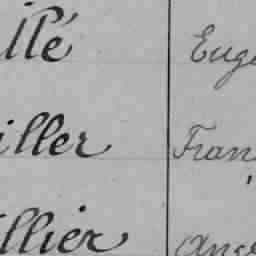 llé Eugè
iller Fran
illier Ange